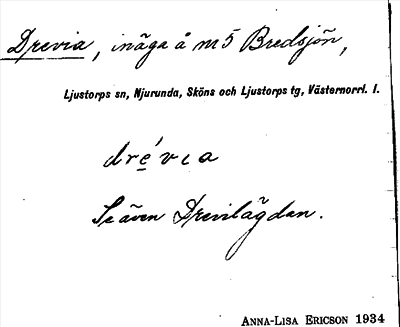 Drevia, inäga å nr 5 Bredsjön,
Ljustorps sn, Njurunda, Sköns och Ljustorps tg, Västernorrl. l.
dre̱´vıa
Se även Drevilägdan.
ANNA-LISA ERICSON 1934